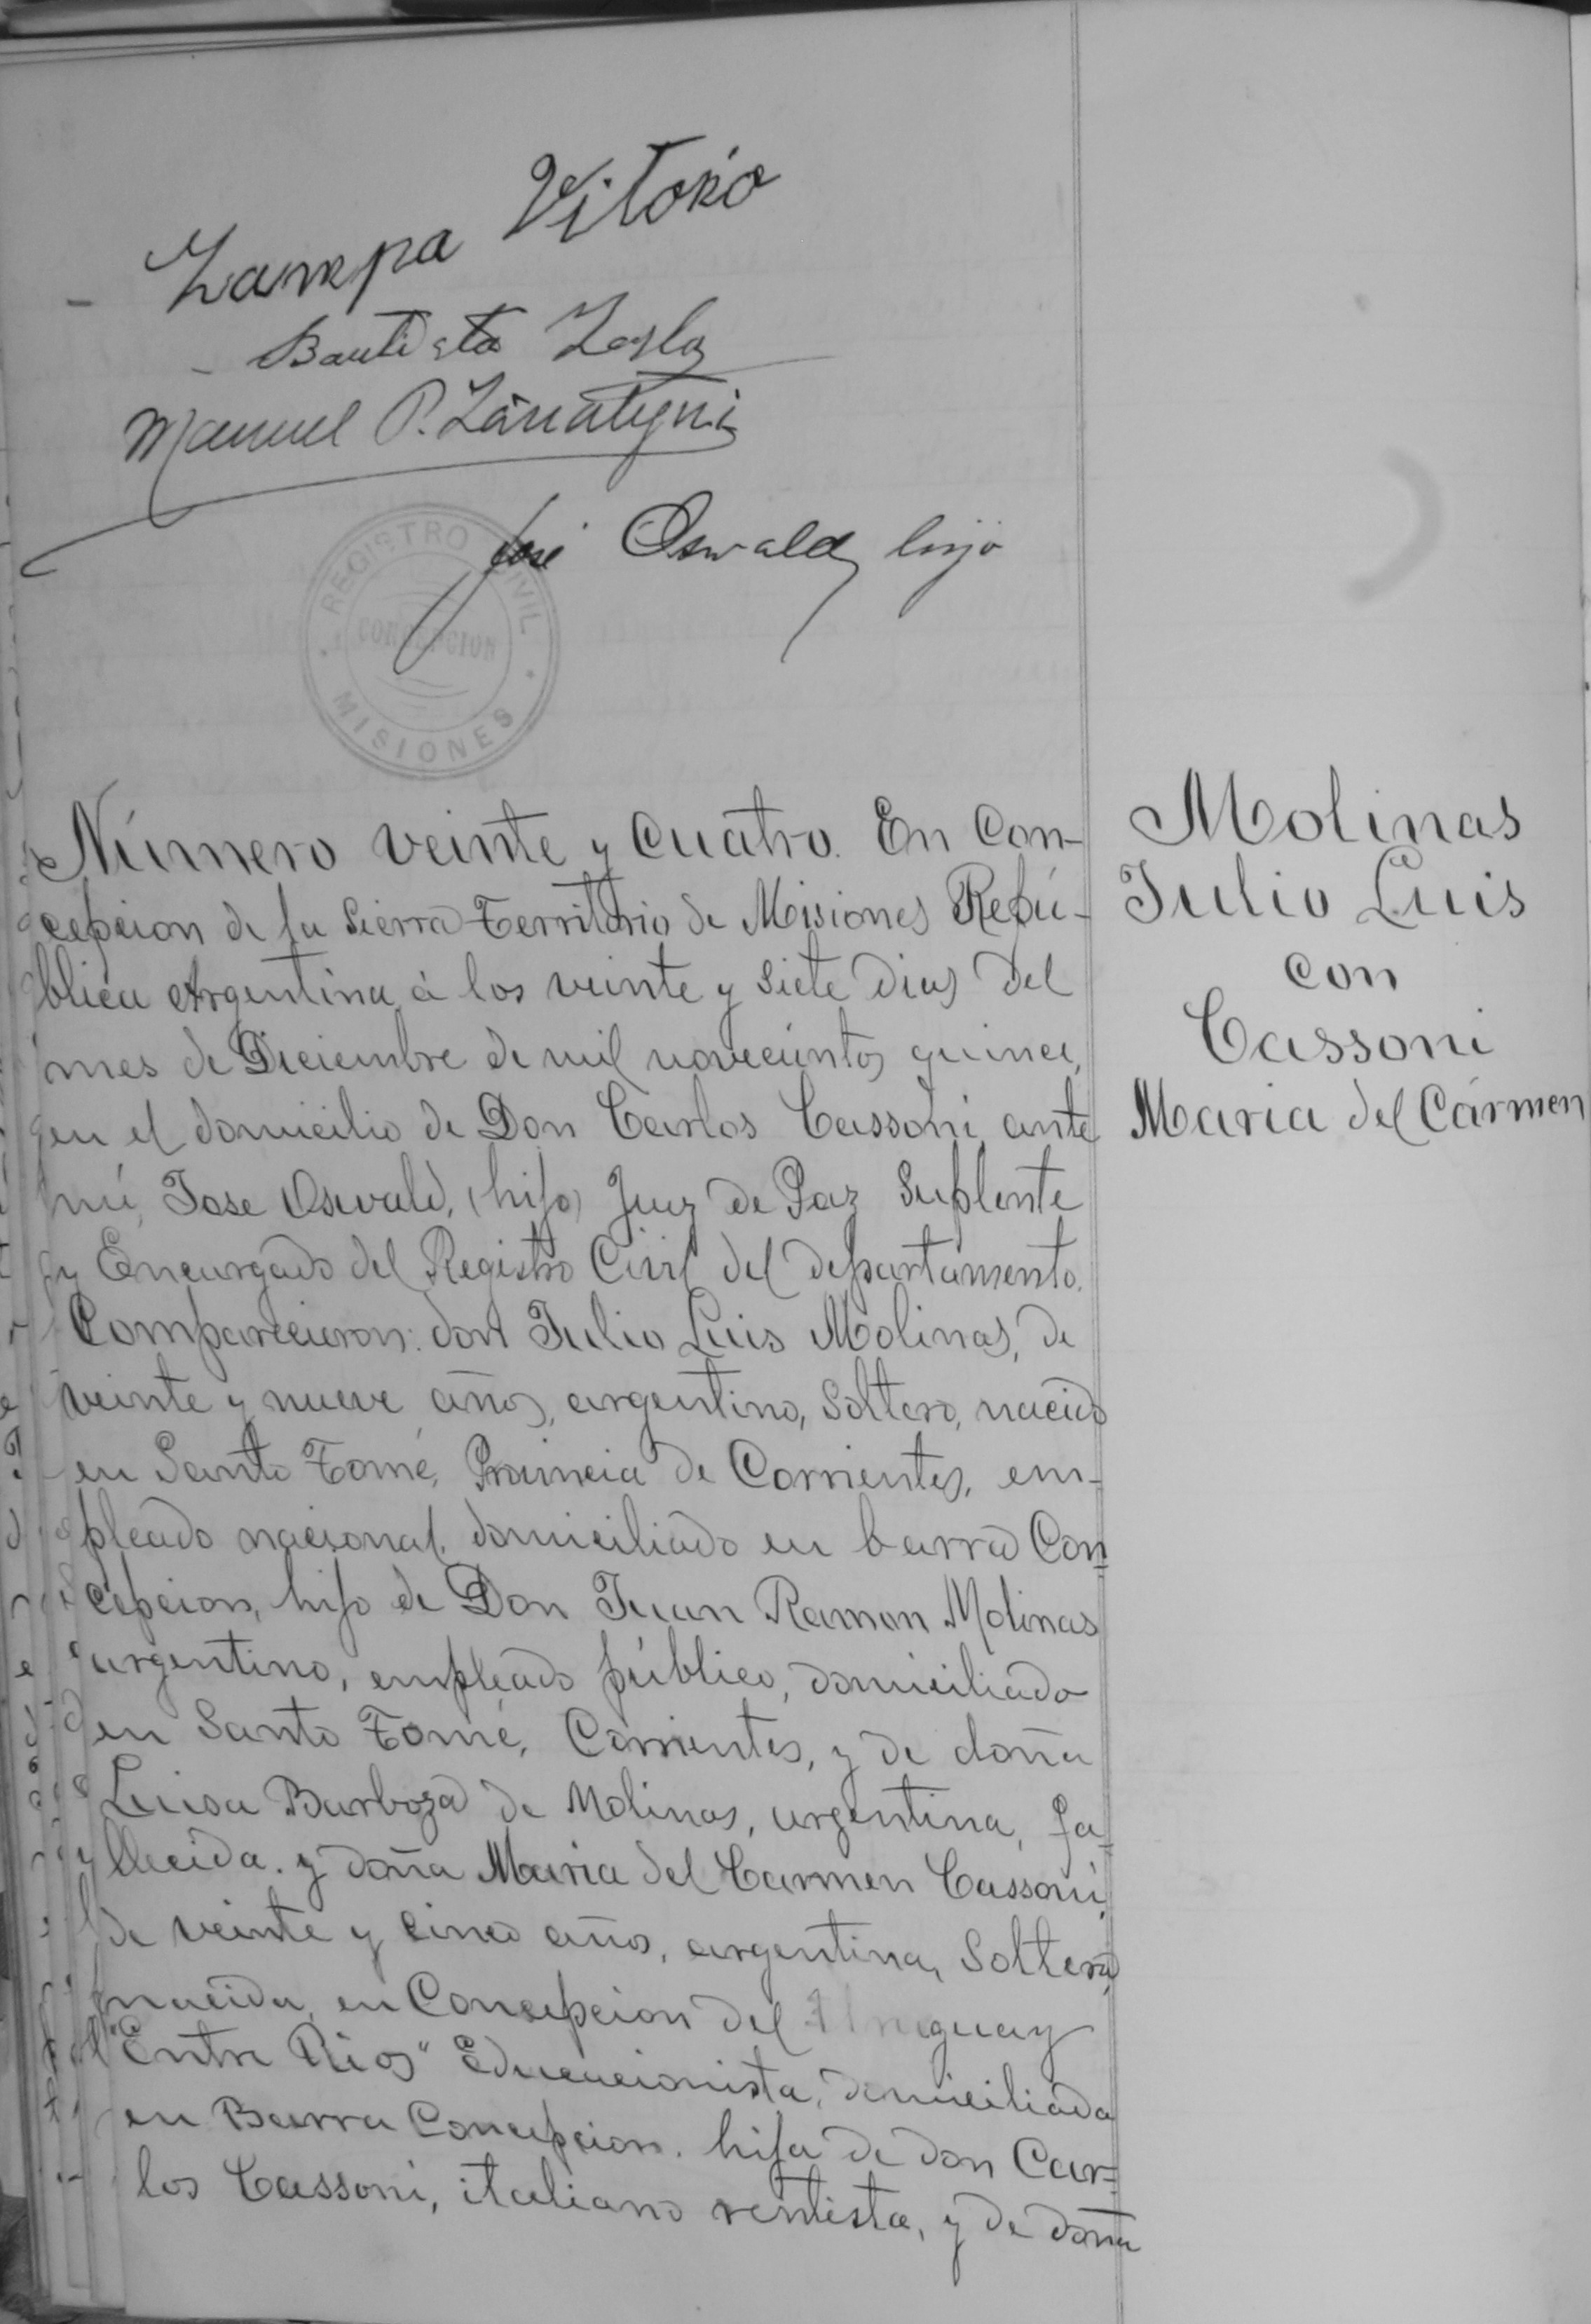 Zampa Vitorio
Bautista Zasla
Manuel P. Zarrategui
José Oswald hijo
REGISTRO CIVIL
CONCEPCION
MISIONES
Número veinte y cuatro. En Con-
cepcion de la Sierra Territorio de Misiones Repú-
blica Argentina á los veinte y siete dias del
mes de Diciembre de mil novecientos quince,
en el domicilio de Don Carlos Cassoni, ante
mí, Jose Oswald, (hijo) Juez de Paz Suplente
y Encargado del Registro Civil del departamento.
Comparecieron: don Julio Luis Molinas, de
veinte y nueve años, argentino, Soltero, nacido
en Santo Tomé, Provincia de Corrientes, em-
pleado nacional, domiciliado en barra Con-
cepcion, hijo de Don Juan Ramon Molinas
argentino, empleado público, domiciliado
en Santo Tomé, Corrientes, y de doña
Luisa Barboza de Molinas, argentina, fa-
llecida. y doña Maria del Carmen Cassoni,
de veinte y cinco años, argentina, Soltera,
nacida, en Concepcion del Uruguay
"Entre Rios" Educacionista, domiciliada
en Barra Concepcion. hija de don Car=
los Cassoni, italiano rentista, y de doña
Molinas
Julio Luis
con
Cassoni
Maria del Cármen